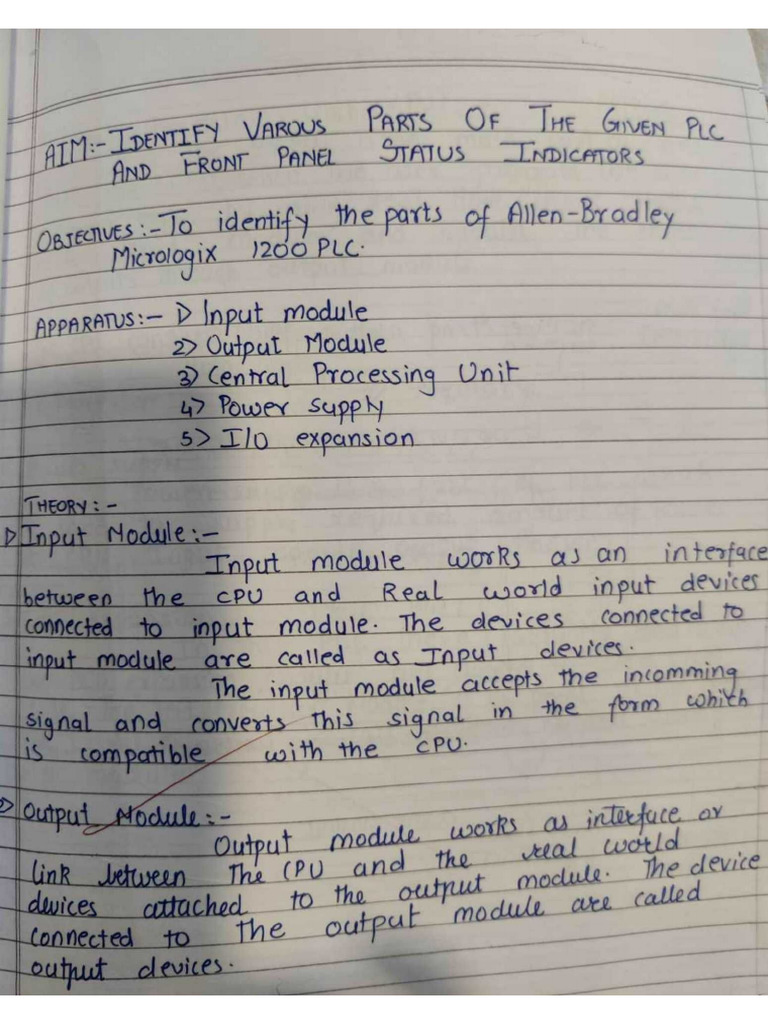 AIM:- IDENTIFY VAROUS PARTS OF THE GIVEN PLC
AND FRONT PANEL STATUS INDICATORS
OBJECTIVES:- To identify the parts of Allen-Bradley
Micrologix 1200 PLC.
APPARATUS:- 1) Input module
2) Output Module
3) Central Processing Unit
4) Power supply
5) I/O expansion
THEORY:-
1) Input Module:-
Input module works as an interface
between the CPU and Real world input devices
connected to input module. The devices connected to
input module are called as Input devices.
The input module accepts the incomming
signal and converts this signal in the form whith
is compatible with the CPU.
2) Output Module:-
Output module works as interface or
link between the CPU and the real world
devices attached to the output module. The device
connected to the output module are called
output devices.